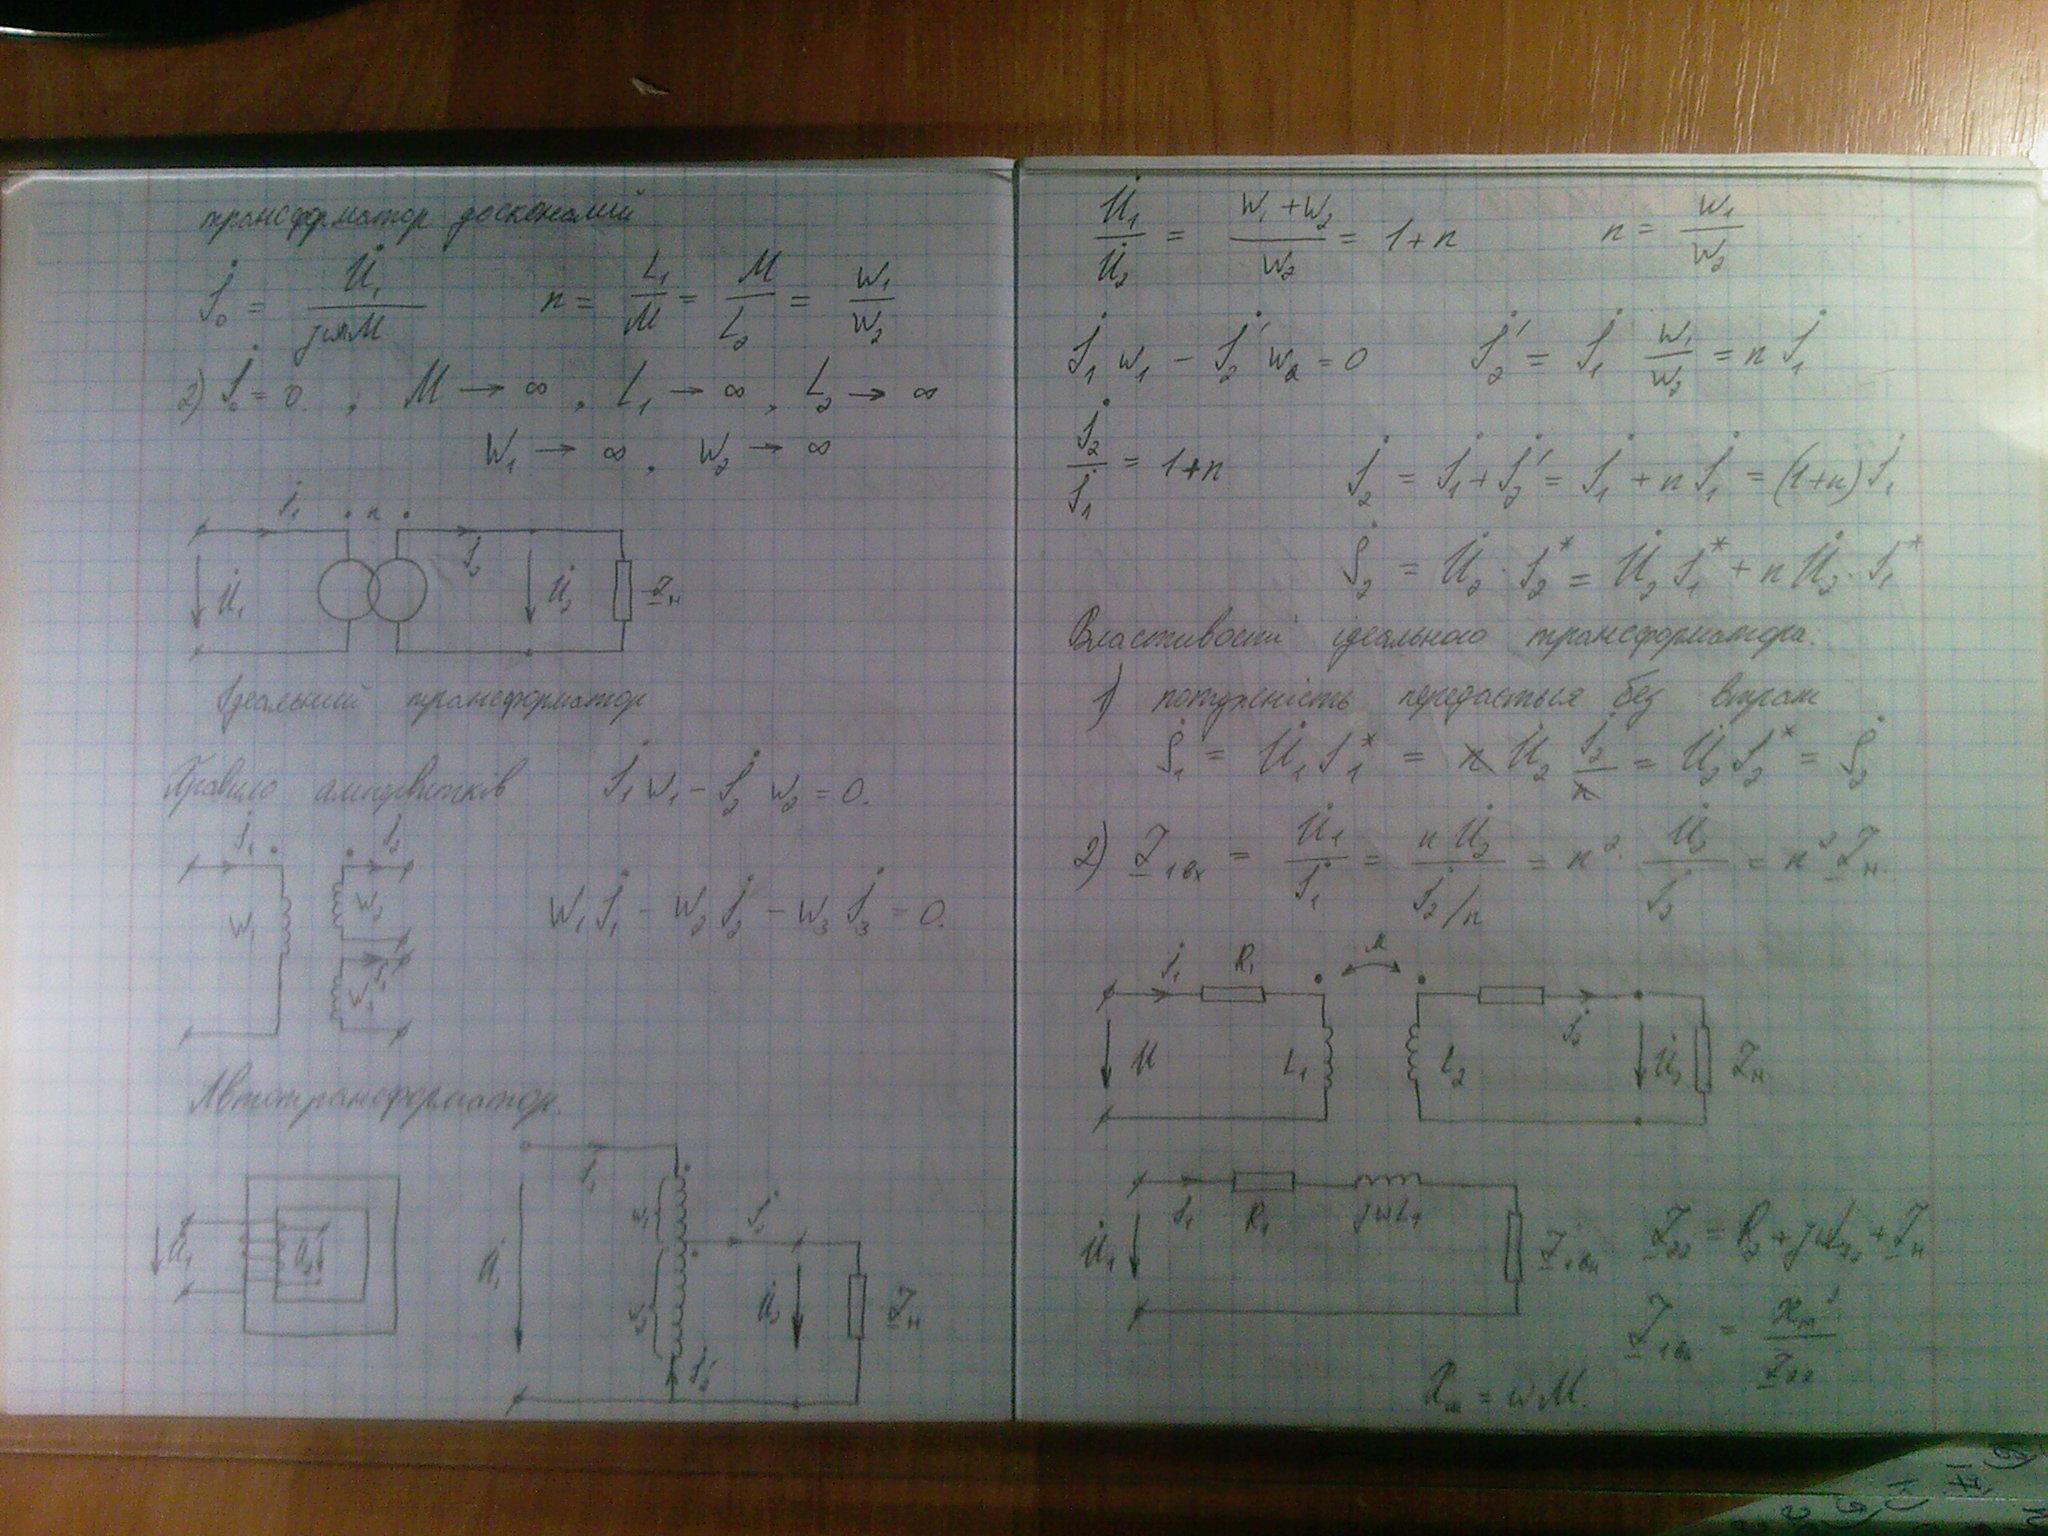 трансформатор досконалий
İ₀ = U̇₁ / jωM    n = L₁/M = M/L₂ = w₁/w₂
2) İ₀ = 0. , M → ∞ , L₁ → ∞ , L₂ → ∞
W₁ → ∞ , W₂ → ∞
İ₁ n
İ₂
U̇₁ U̇₂ Z̲н
Ідеальний трансформатор
Правило ампервитків İ₁w₁ − İ₂ w₂ = 0.
İ₁ İ₂
W₁ W₂
W₁İ₁ − W₂İ₂ − W₃İ₃ = 0.
Автотрансформатор.
İ₁
w₁ İ₂
U̇₁ U̇₂
U̇₁ w₂ U̇₂ Z̲н
İ₂′
U̇₁/U̇₂ = (w₁ + w₂)/w₂ = 1 + n    n = w₁/w₂
İ₁ w₁ − İ₂′ w₂ = 0    İ₂′ = İ₁ w₁/w₂ = n İ₁
İ₂/İ₁ = 1 + n    İ₂ = İ₁ + İ₂′ = İ₁ + n İ₁ = (1+n) İ₁
Ṡ₂ = U̇₂ · I₂* = U̇₂ I₁* + n U̇₂ · I₁*
Властивості ідеального трансформатора.
1) потужність передається без втрат
Ṡ₁ = U̇₁ I₁* = n U̇₂ İ₂*/n = U̇₂ I₂* = Ṡ₂
2) Z̲₁вх = U̇₁/İ₁ = n U̇₂/(İ₂/n) = n² · U̇₂/İ₂ = n² Z̲н
İ₁ R₁ M
İ₂
U L₁ L₂ U̇₂ Z̲н
İ₁ R₁ jωL₁
U̇₁ Z̲₁вн Z̲₂₂ = R₂ + jωL₂ + Z̲н
Z̲₁вн = xₘ²/Z̲₂₂
Xₘ = ωM.